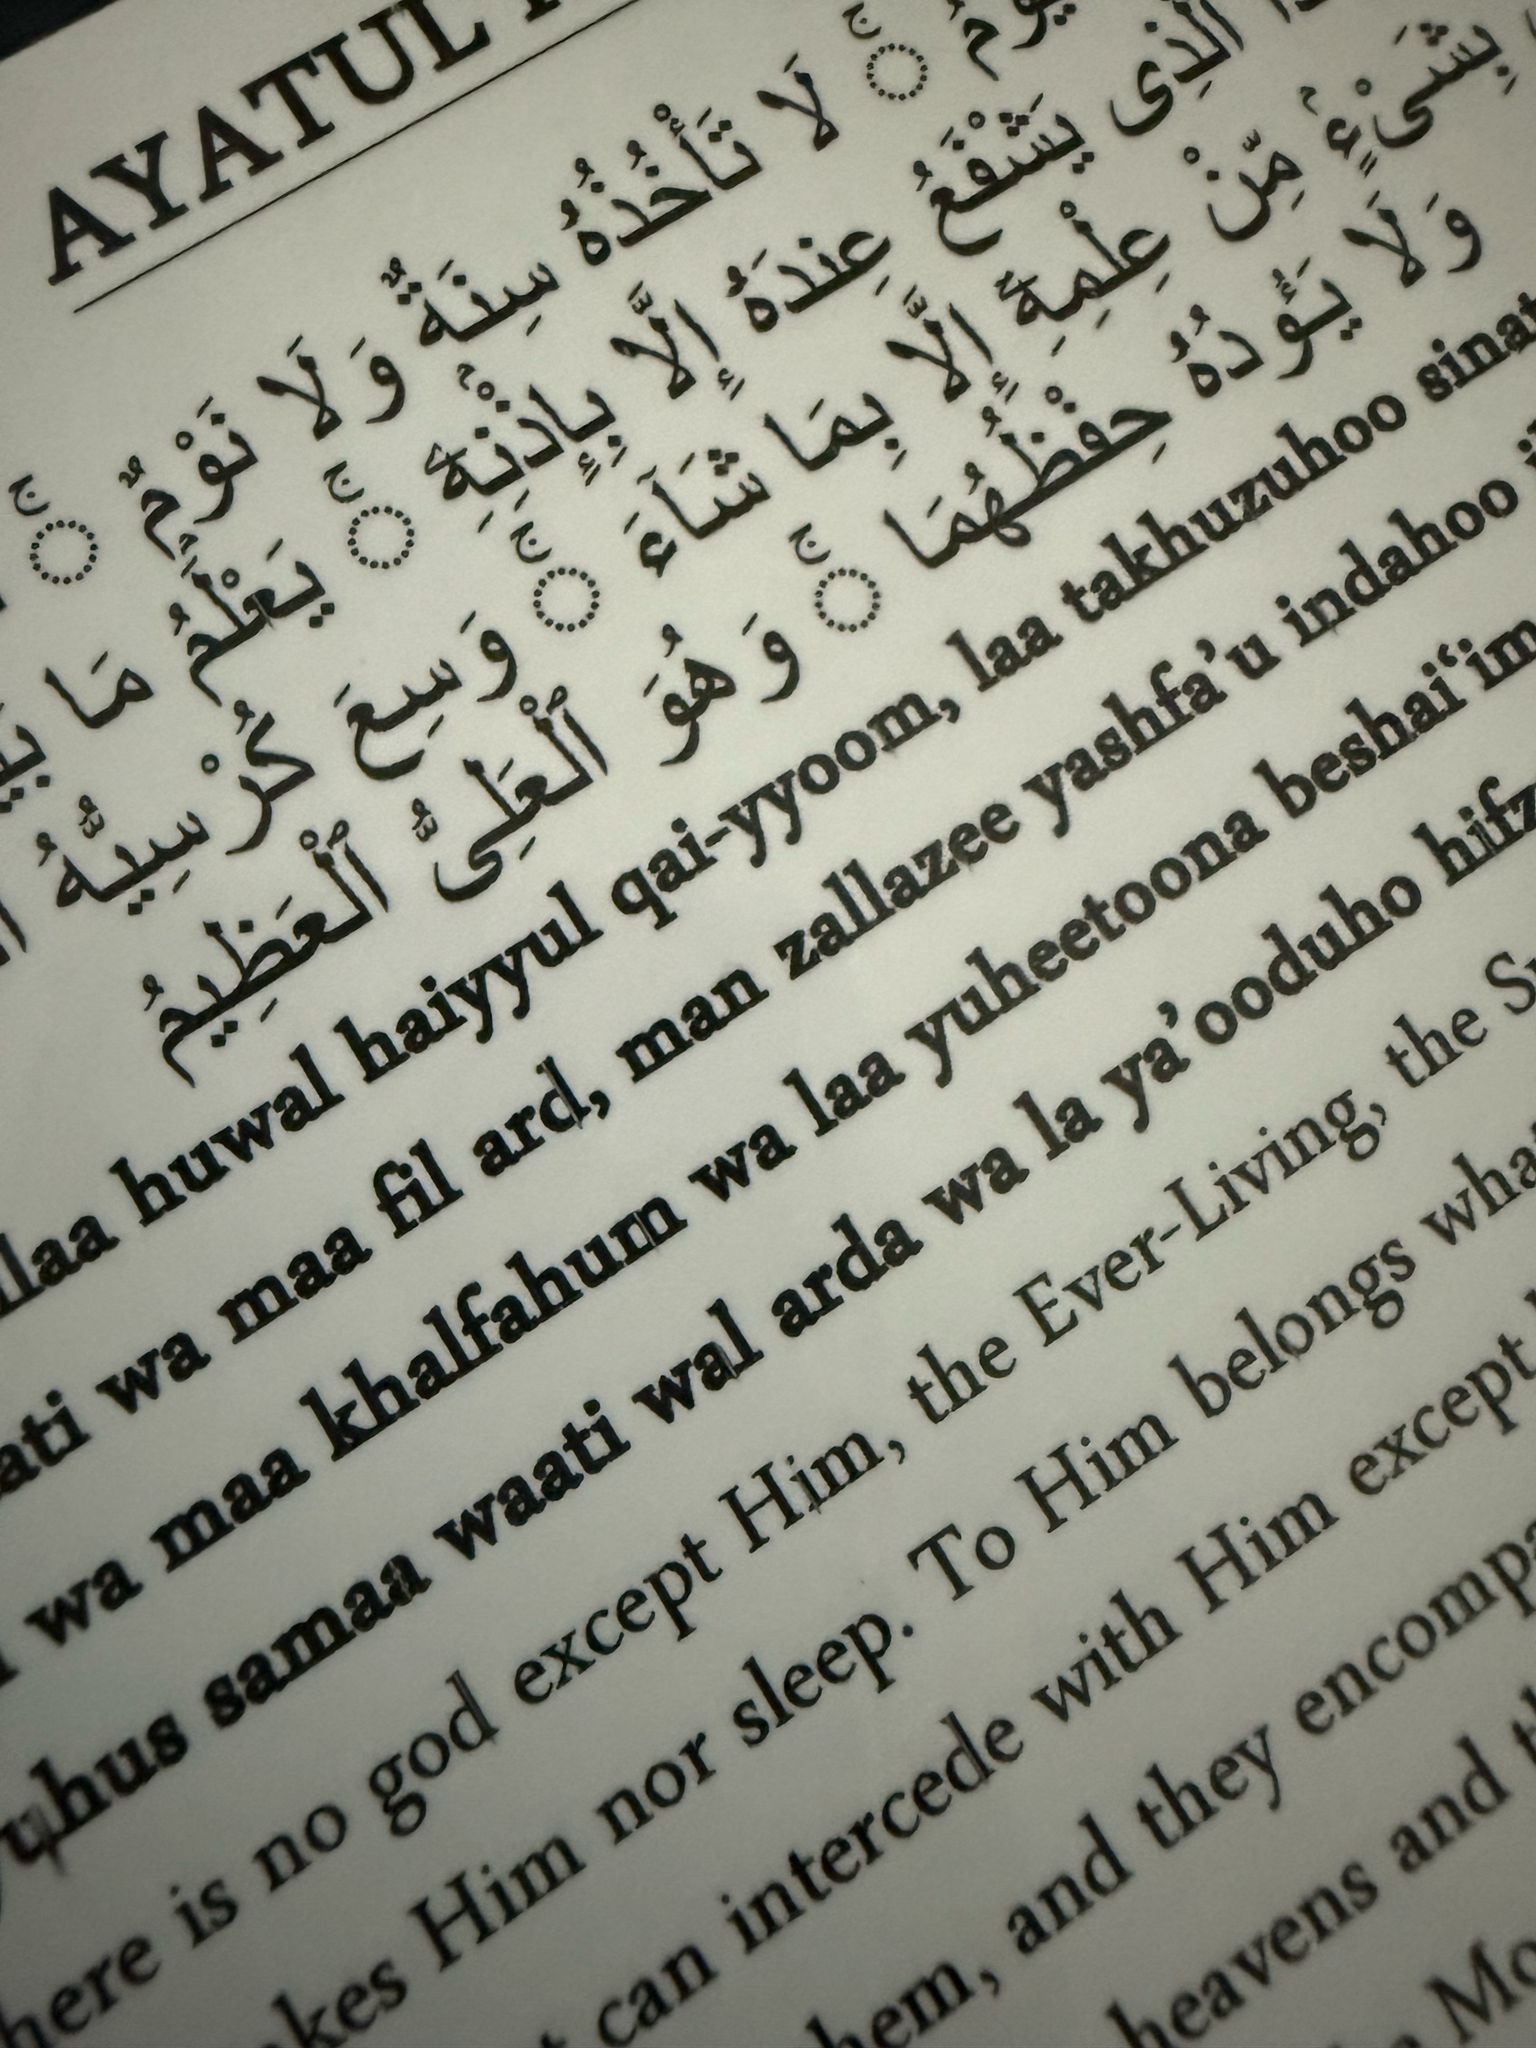 AYATUL
لَا تَأْخُذُهُ سِنَةٌ وَلَا نَوْمٌ ۚ
ٱلَّذِى يَشْفَعُ عِندَهُ إِلَّا بِإِذْنِهِۦ ۚ يَعْلَمُ مَا
بِشَىْءٍ مِّنْ عِلْمِهِۦٓ إِلَّا بِمَا شَآءَ ۚ وَسِعَ كُرْسِيُّهُ
وَلَا يَـُٔودُهُ حِفْظُهُمَا ۚ وَهُوَ ٱلْعَلِىُّ ٱلْعَظِيمُ
llaa huwal haiyyul qai-yyoom, laa takhuzuhoo sinat
ati wa maa fil ard, man zallazee yashfa’u indahoo
wa maa khalfahum wa laa yuheetoona beshai‘im
uhus samaa waati wal arda wa la ya’ooduho hifz
here is no god except Him, the Ever-Living, the
akes Him nor sleep. To Him belongs what
can intercede with Him except
hem, and they encompa
heavens and
Mo